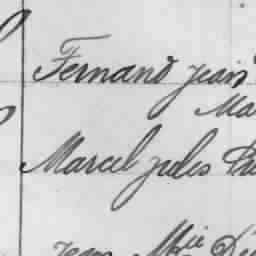 Fernand Jean
Ma
Marcel Jules
Jean Mie